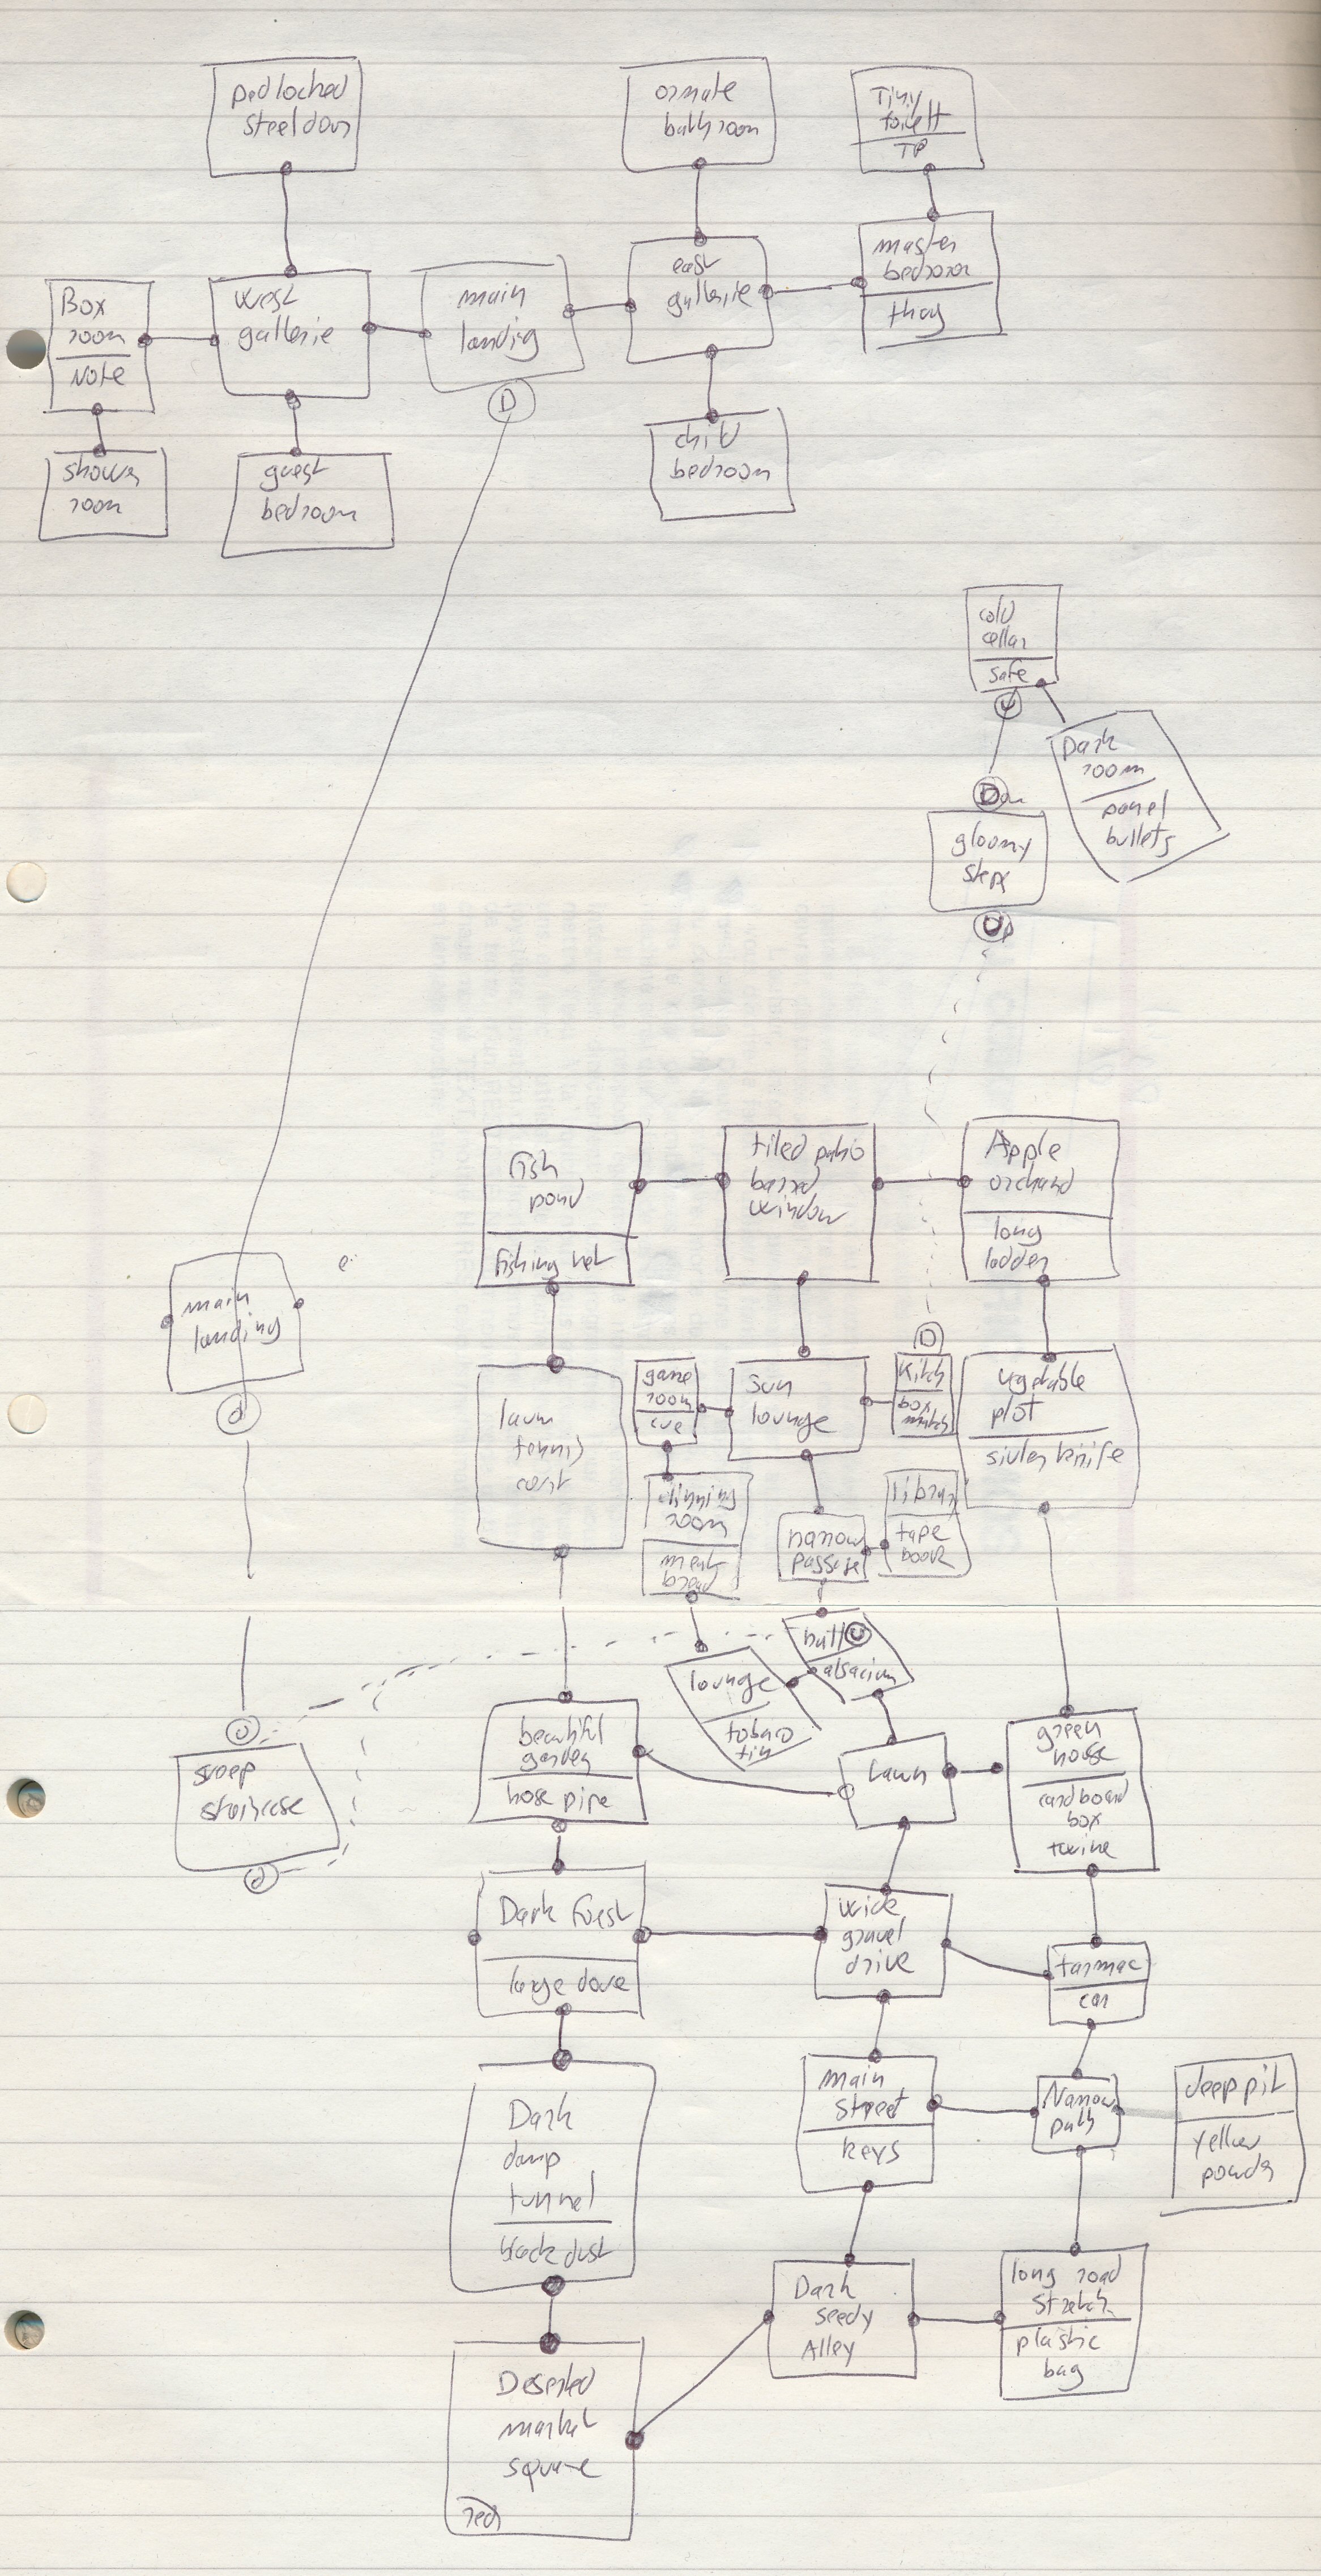 padlocked
steel door
ornate
bathroom
Tiny
toilett
TP
Box
room
Note
west
gallerie
main
landig
D
east
gallerie
master
bedroom
shower
room
guest
bedroom
child
bedroom
cold
cellar
safe
U
Dark
room
panel
bullets
gloomy
steps
fish
pond
fishing net
tiled patio
barred
window
Apple
orchard
long
ladder
main
landing
D
lawn
tennis
court
game
room
cue
sun
lounge
Kitch
box
match
vegetable
plot
silver knife
dinning
room
meat
bread
narrow
passage
library
tape
book
lounge
tobaco
tin
U
alsacian
beautiful
garden
hose pipe
Lawn
green
house
cardboard
box
twine
staircase
d
Dark forest
wide
gravel
drive
tarmac
car
Dark
damp
tunnel
black dust
main
street
keys
Narrow
path
deep pit
yellow
powder
Dark
seedy
Alley
long road
stretch
plastic
bag
Deserted
market
square